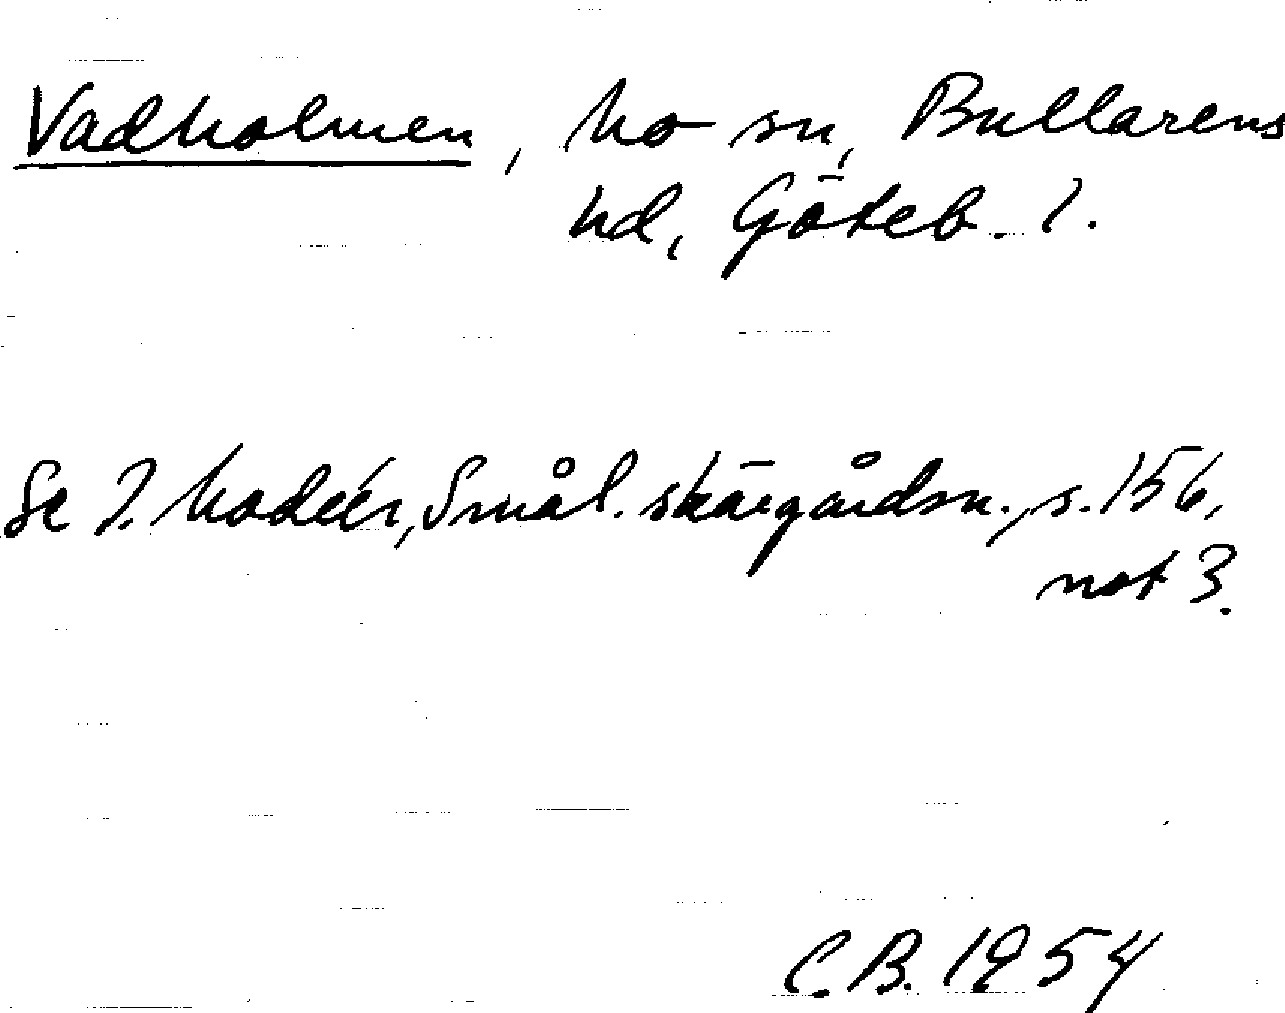 Vadholmen, Mo sn, Bullarens
hd, Göteb. l.
Se I. Modéer, Smål. skärgårdsn., s. 156,
not 3.
C.B. 1954